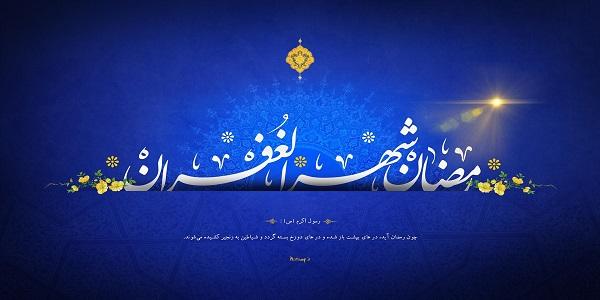 رمضان شهر الغُفران
رسول اکرم (ص):
چون رمضان آید، در های بهشت باز شده و در های دوزخ بسته گردد و شیاطین به زنجیر کشیده می‌شوند.